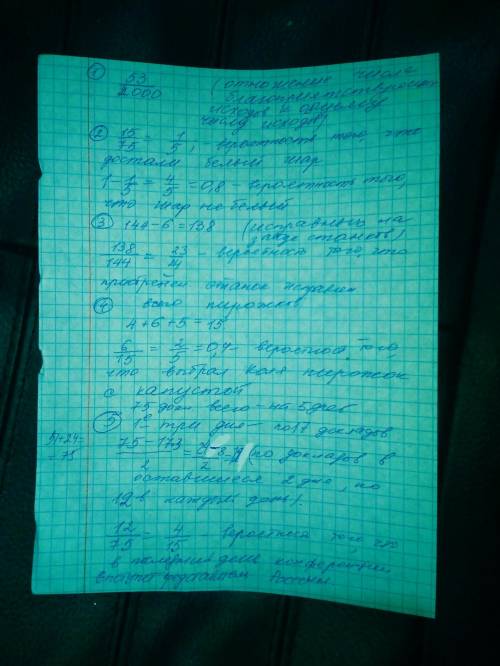 ① 53/2000 (отношение числа
благоприятствующих
исходов к общему
числу исходов)
② 15/75 = 1/5; - вероятность того, что
достали белый шар
1 - 1/5 = 4/5 = 0,8 - вероятность того,
что шар не белый
③ 144-6=138 (исправных
станков)
138/144 = 23/24 - вероятность того, что
станок исправен
④ всего пирожков
4+6+5=15
6/15 = 2/5 = 0,4 - вероятность того,
что выбрал Коля пирожок
с капустой
75 докл всего - на 5 дней
⑤ 1 - три дня - по 17 докладов
51+24=
=75
(по докладов в
оставшиеся 2 дня, по
12 в каждый день).
12/75 = 4/15 - вероятность того, что
в последний день конференции
России